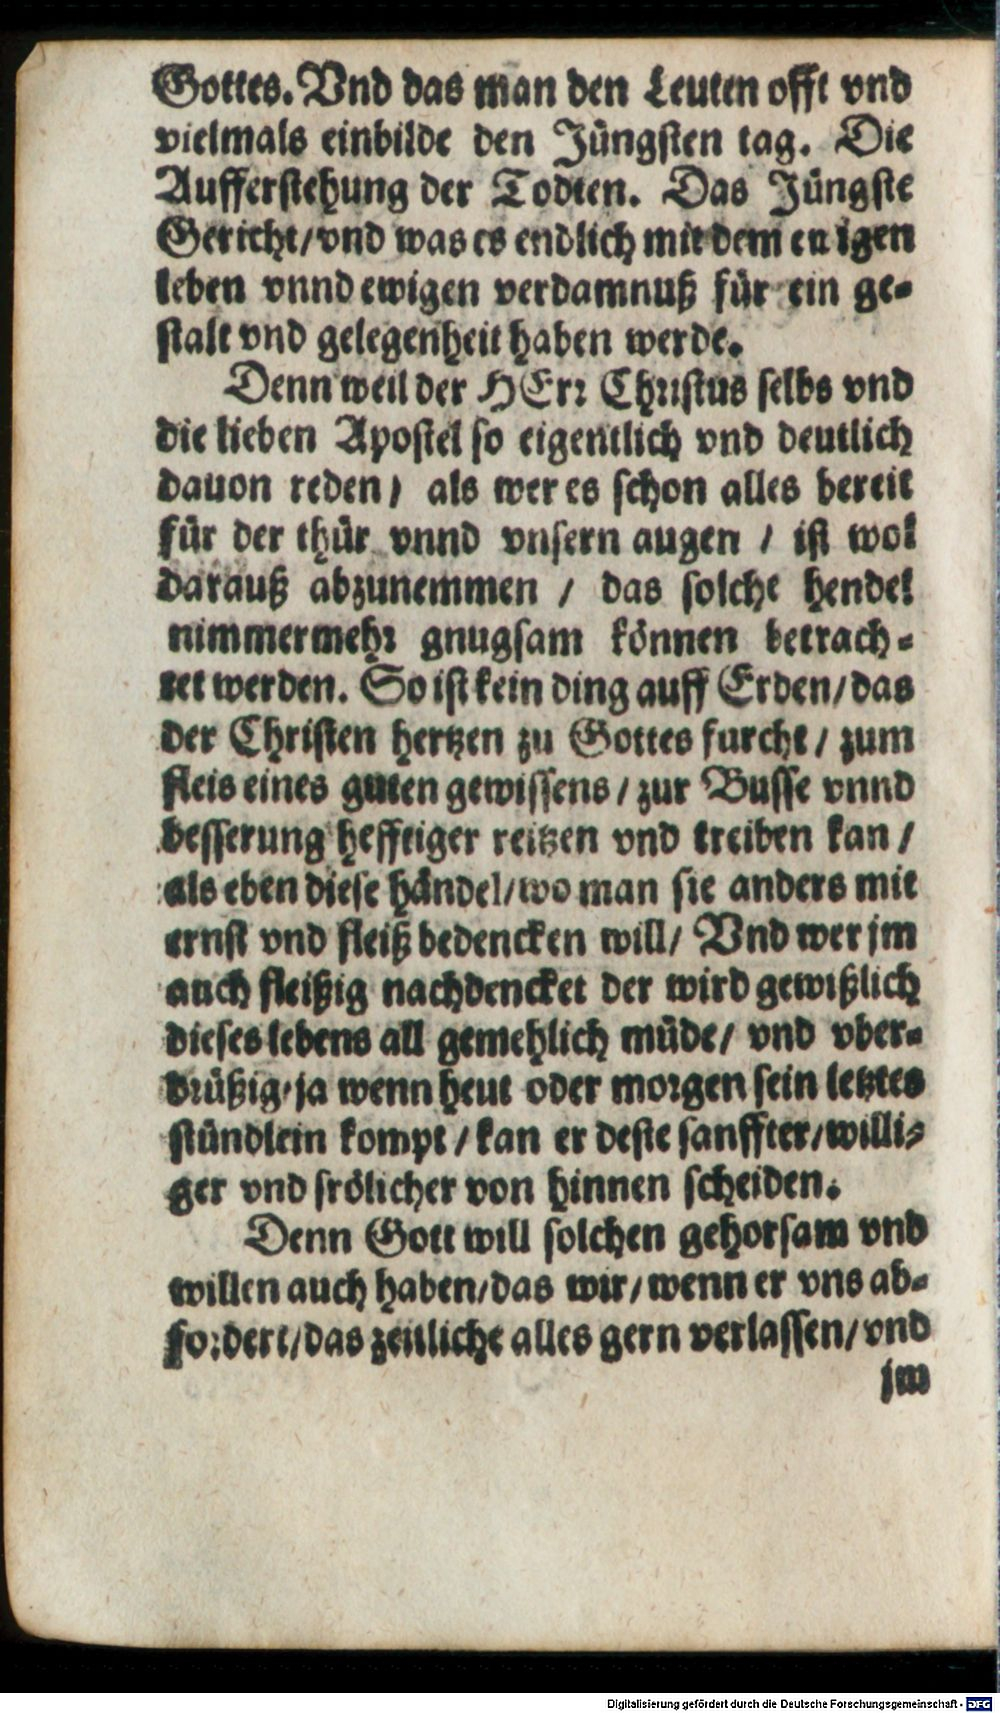 Gottes. Vnd das man den Leuten offt vnd
vielmals einbilde den Jüngsten tag. Die
Aufferstehung der Todten. Das Jüngste
Gericht/vnd was es endlich mit dem en igen
leben vnnd ewigen verdamnuß für ein ge-
stalt vnd gelegenheit haben werde.
Denn weil der HErr Christus selbs vnd
die lieben Apostel so eigentlich vnd deutlich
dauon reden/ als wer es schon alles bereit
für der thür vnnd vnsern augen / ist wol
darauß abzunemmen / das solche hendel
nimmermehr gnugsam können betrach-
tet werden. So ist kein ding auff Erden/das
der Christen hertzen zu Gottes furcht/ zum
fleis eines guten gewissens/ zur Busse vnnd
besserung hefftiger reitzen vnd treiben kan/
als eben diese händel/wo man sie anders mit
ernst vnd fleiß bedencken will/ Vnd wer jm
auch fleißig nachdencket der wird gewißlich
dieses lebens all gemehlich müde/ vnd vber-
drüßig/ja wenn heut oder morgen sein letztes
stündlein kompt/kan er deste sanffter/willi-
ger vnd frölicher von hinnen scheiden.
Denn Gott will solchen gehorsam vnd
willen auch haben/das wir/wenn er vns ab-
fordert/das zeitliche alles gern verlassen/vnd
jm
Digitalisierung gefördert durch die Deutsche Forschungsgemeinschaft - DFG